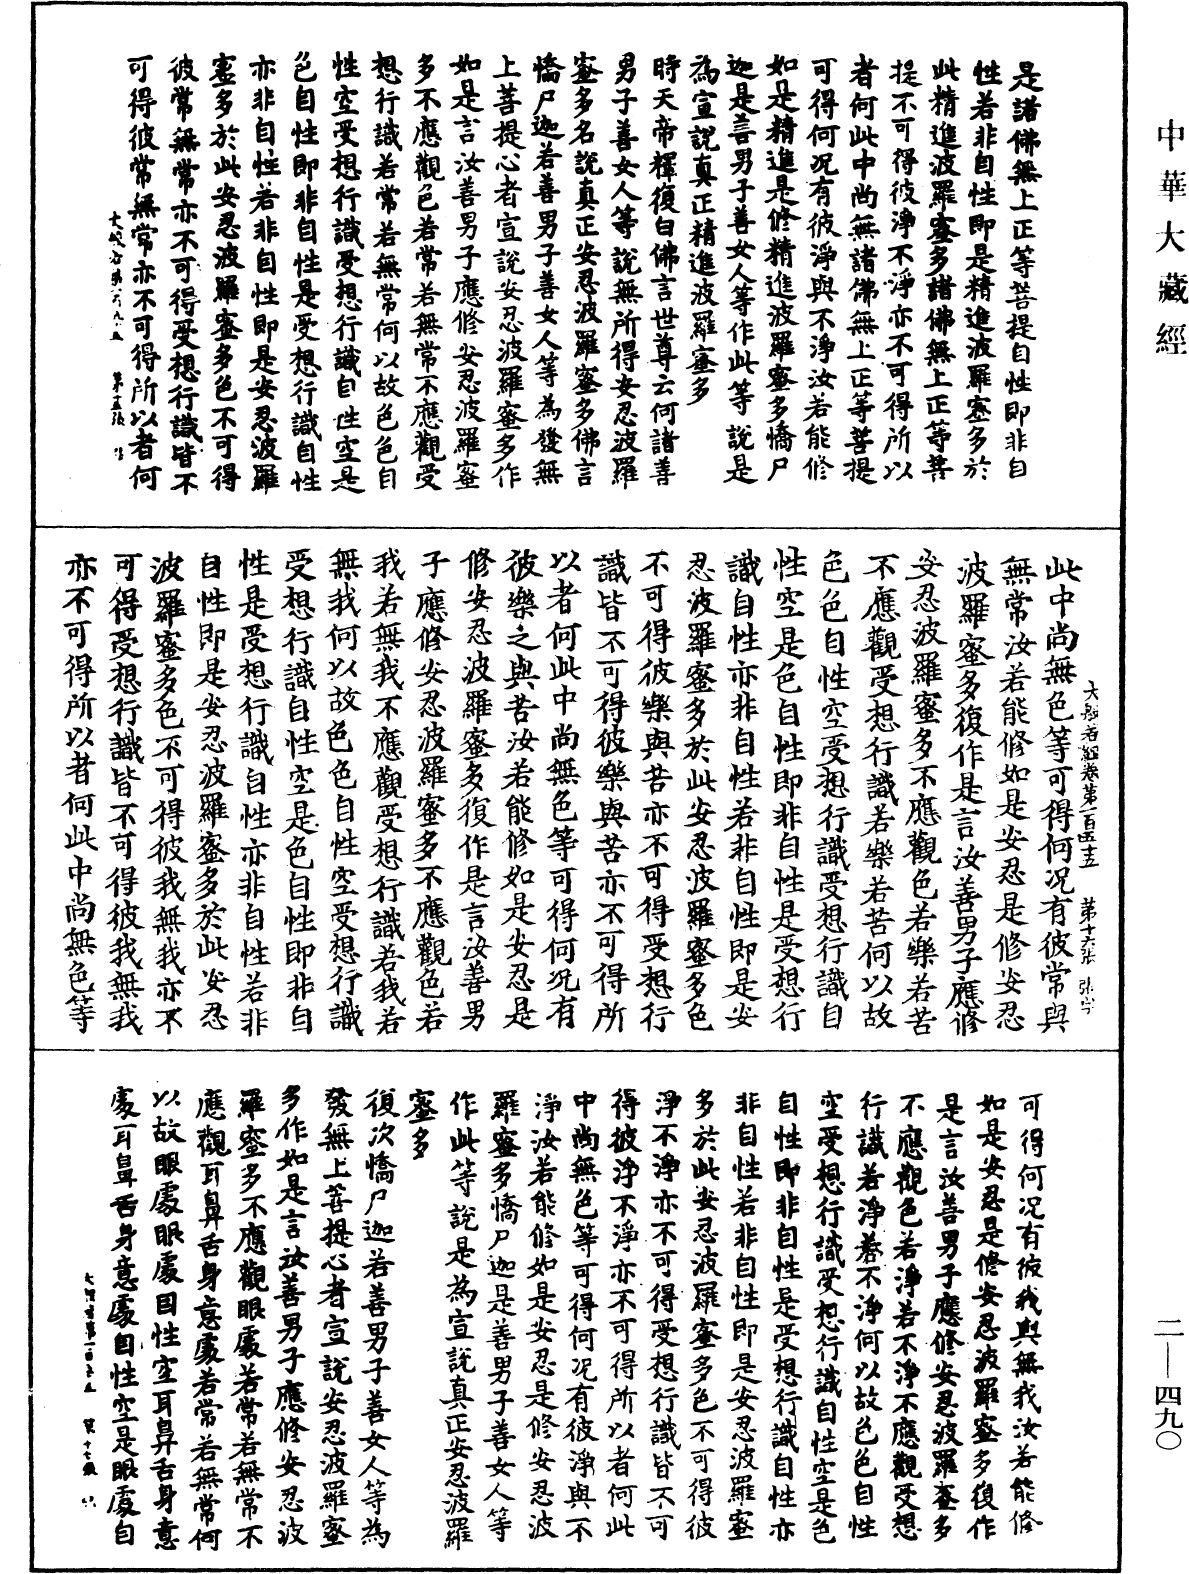 中華大藏經
是諸佛無上正等菩提自性即非自
性若非自性即是精進波羅蜜多於
此精進波羅蜜多諸佛無上正等菩
提不可得彼淨不淨亦不可得所以
者何此中尚無諸佛無上正等菩提
可得何況有彼淨與不淨汝若能修
如是精進是修精進波羅蜜多憍尸
迦是善男子善女人等作此等說是
為宣說真正精進波羅蜜多
時天帝釋復白佛言世尊云何諸善
男子善女人等說無所得安忍波羅
蜜多名說真正安忍波羅蜜多佛言
憍尸迦若善男子善女人等為發無
上菩提心者宣說安忍波羅蜜多作
如是言汝善男子應修安忍波羅蜜
多不應觀色若常若無常不應觀受
想行識若常若無常何以故色色自
性空受想行識受想行識自性空是
色自性即非自性是受想行識自性
亦非自性若非自性即是安忍波羅
蜜多於此安忍波羅蜜多色不可得
彼常無常亦不可得受想行識皆不
可得彼常無常亦不可得所以者何
大般若經卷第一百四十五 第十六張 張字
此中尚無色等可得何況有彼常與
無常汝若能修如是安忍是修安忍
波羅蜜多復作是言汝善男子應修
安忍波羅蜜多不應觀色若樂若苦
不應觀受想行識若樂若苦何以故
色色自性空受想行識受想行識自
性空是色自性即非自性是受想行
識自性亦非自性若非自性即是安
忍波羅蜜多於此安忍波羅蜜多色
不可得彼樂與苦亦不可得受想行
識皆不可得彼樂與苦亦不可得所
以者何此中尚無色等可得何況有
彼樂之與苦汝若能修如是安忍是
修安忍波羅蜜多復作是言汝善男
子應修安忍波羅蜜多不應觀色若
我若無我不應觀受想行識若我若
無我何以故色色自性空受想行識
受想行識自性空是色自性即非自
性是受想行識自性亦非自性若非
自性即是安忍波羅蜜多於此安忍
波羅蜜多色不可得彼我無我亦不
可得受想行識皆不可得彼我無我
亦不可得所以者何此中尚無色等
可得何況有彼我與無我汝若能修
如是安忍是修安忍波羅蜜多復作
是言汝善男子應修安忍波羅蜜多
不應觀色若淨若不淨不應觀受想
行識若淨若不淨何以故色色自性
空受想行識受想行識自性空是色
自性即非自性是受想行識自性亦
非自性若非自性即是安忍波羅蜜
多於此安忍波羅蜜多色不可得彼
淨不淨亦不可得受想行識皆不可
得彼淨不淨亦不可得所以者何此
中尚無色等可得何況有彼淨與不
淨汝若能修如是安忍是修安忍波
羅蜜多憍尸迦是善男子善女人等
作此等說是為宣說真正安忍波羅
蜜多
復次憍尸迦若善男子善女人等為
發無上菩提心者宣說安忍波羅蜜
多作如是言汝善男子應修安忍波
羅蜜多不應觀眼處若常若無常不
應觀耳鼻舌身意處若常若無常何
以故眼處眼處自性空耳鼻舌身意
處耳鼻舌身意處自性空是眼處自
二—四九〇